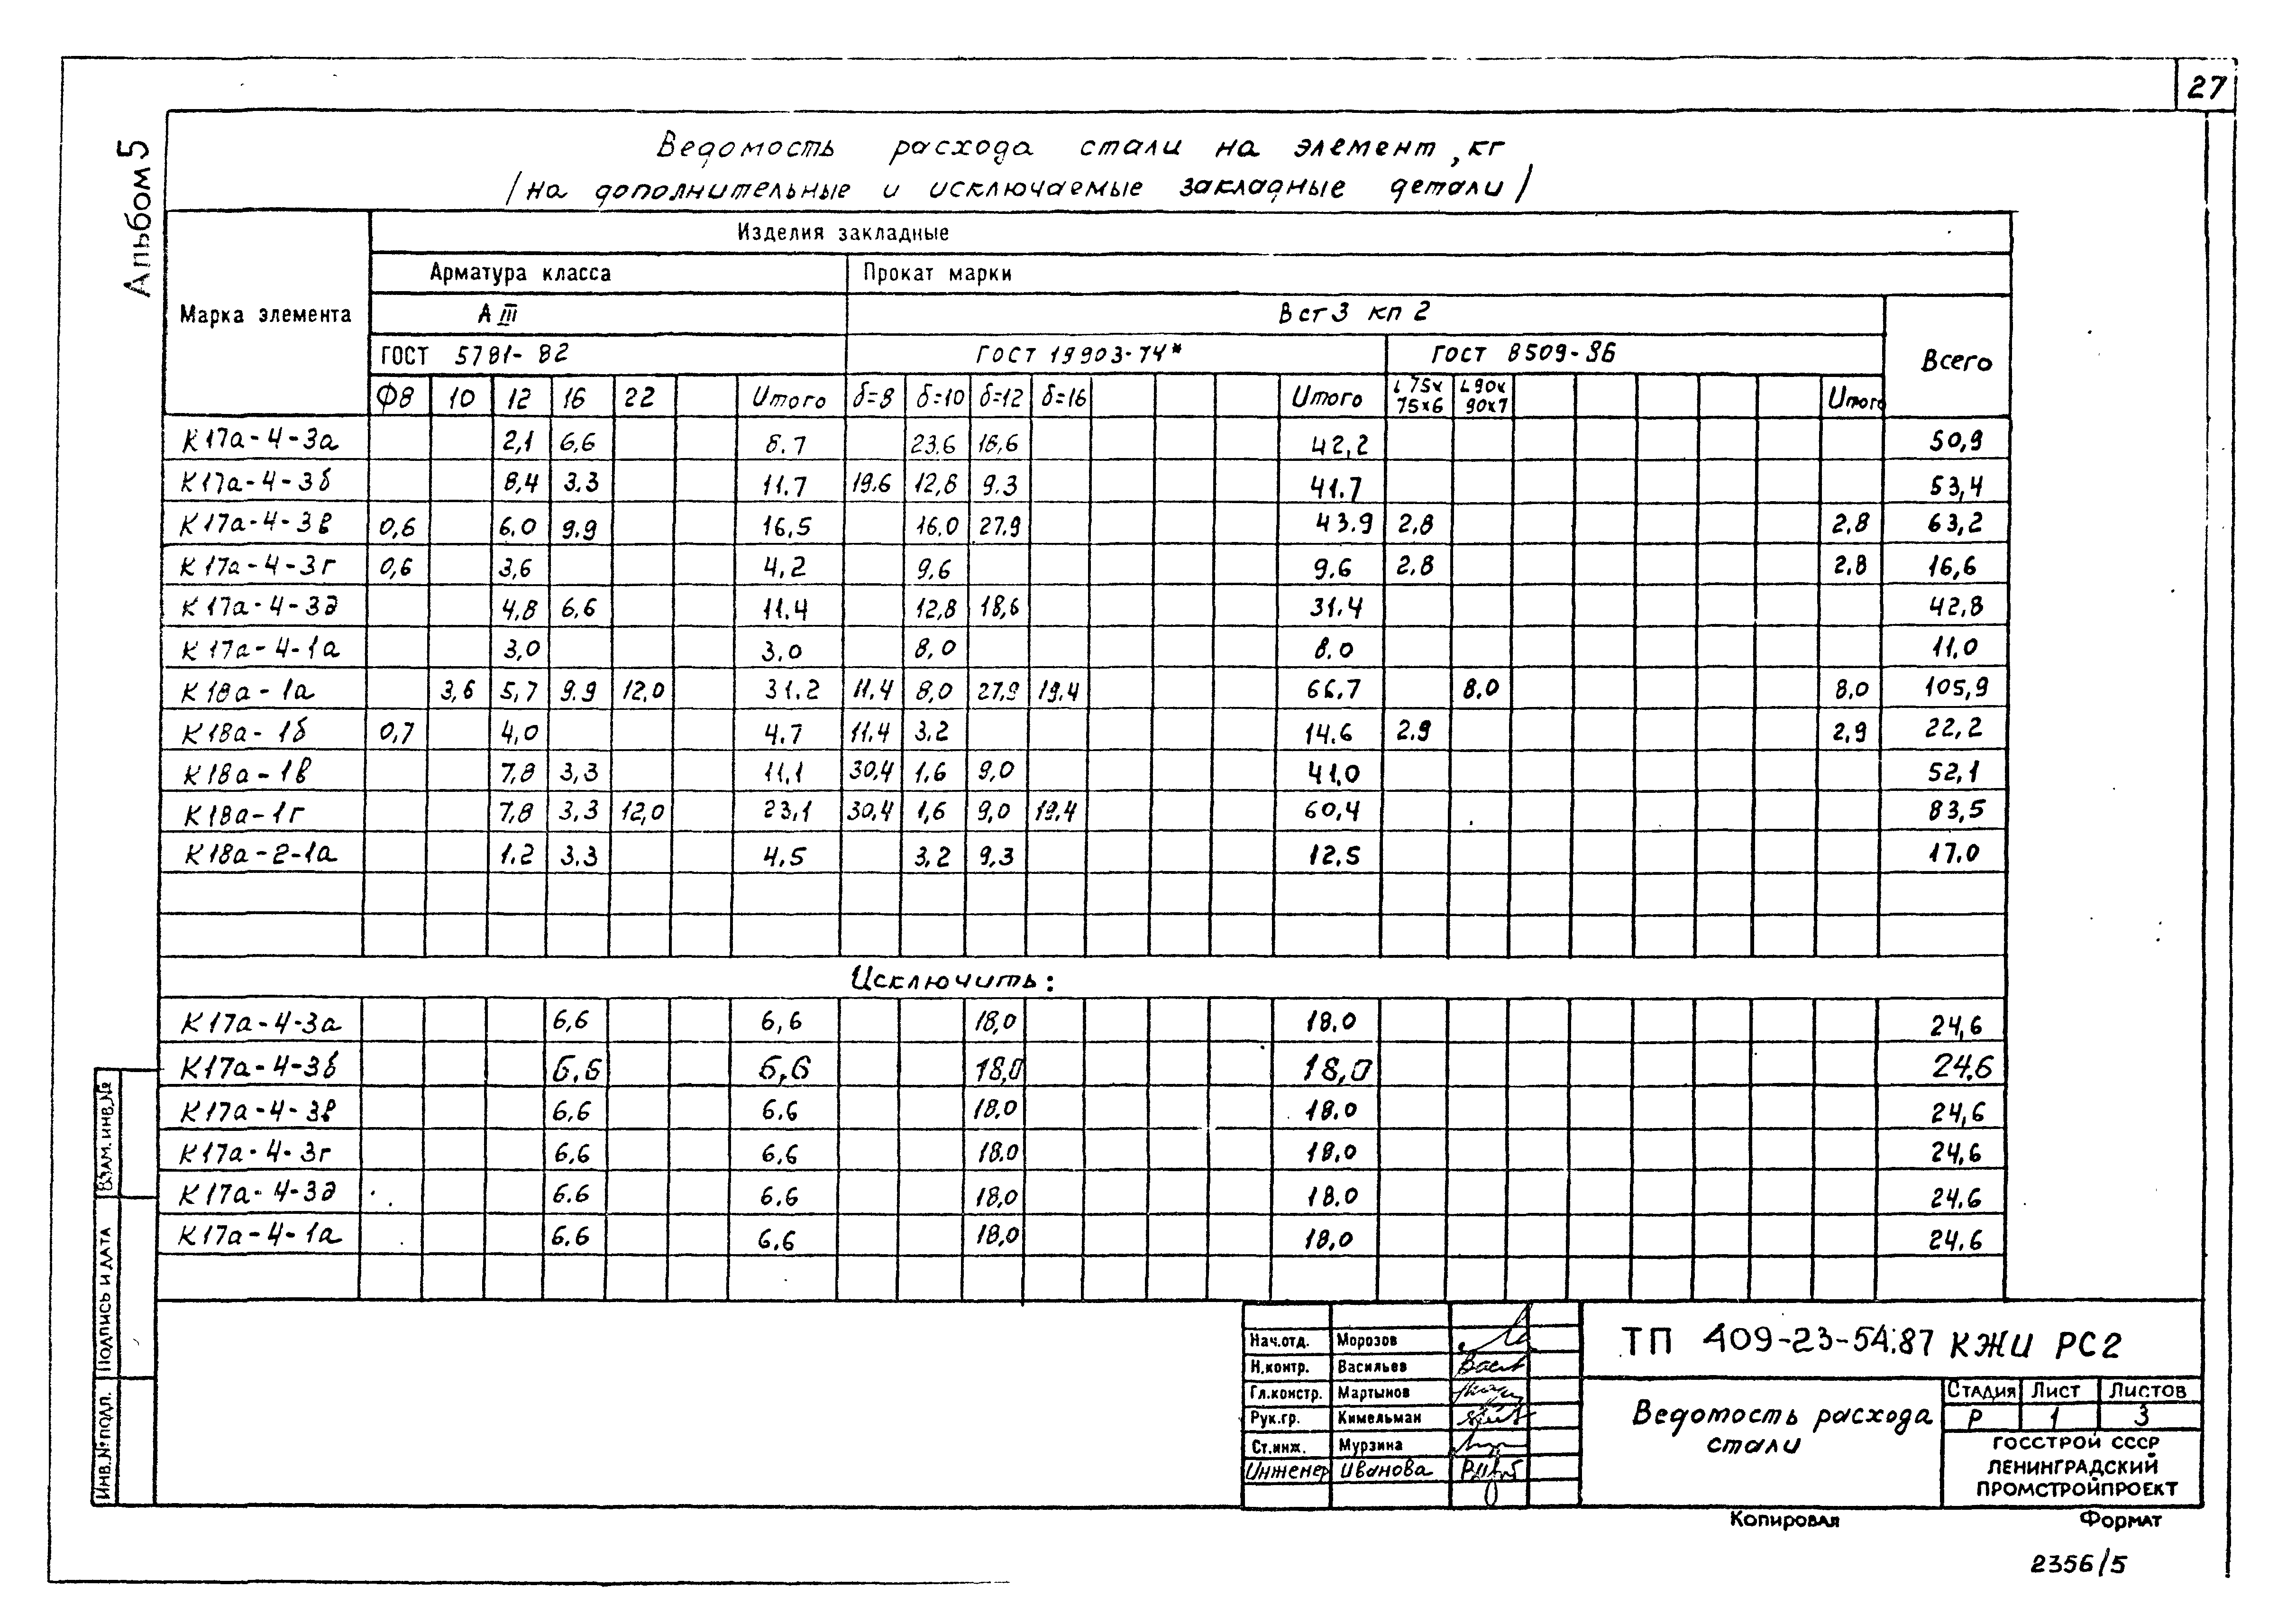 27
Альбом 5
Ведомость расхода стали на элемент, кг
/на дополнительные и исключаемые закладные детали/
Марка элемента
Изделия закладные
Арматура класса Прокат марки
А III Вст3 кп 2 Всего
ГОСТ 5781-82 ГОСТ 19903-74* ГОСТ 8509-86
Ф8 10 12 16 22 Итого δ=8 δ=10 δ=12 δ=16 Итого L75x75x6 L90x90x7 Итого
К17а-4-3а 2,1 6,6 8.7 23.6 18,6 42,2 50,9
К17а-4-3б 8,4 3.3 11.7 19.6 12,8 9.3 41.7 53,4
К17а-4-3в 0,6 6.0 9.9 16,5 16.0 27.9 43.9 2,8 2,8 63,2
К17а-4-3г 0,6 3,6 4,2 9.6 9.6 2,8 2.8 16,6
К17а-4-3д 4,8 6,6 11.4 12,8 18,6 31.4 42,8
К17а-4-1а 3,0 3,0 8,0 8.0 11,0
К18а-1а 3,6 5,7 9.9 12,0 31.2 11.4 8,0 27.9 19.4 66.7 8.0 8.0 105,9
К18а-1б 0,7 4,0 4.7 11.4 3.2 14.6 2.9 2,9 22,2
К18а-1в 7,8 3,3 11,1 30,4 1.6 9,0 41,0 52,1
К18а-1г 7,8 3.3 12,0 23,1 30,4 1,6 9,0 19.4 60,4 83,5
К18а-2-1а 1.2 3.3 4,5 3,2 9,3 12.5 17.0
Исключить:
К17а-4-3а 6,6 6,6 18,0 18.0 24,6
К17а-4-3б 6.6 6,6 18,0 18,0 24.6
К17а-4-3в 6,6 6.6 18.0 18.0 24,6
К17а-4-3г 6,6 6,6 18.0 18.0 24,6
К17а-4-3д 6.6 6.6 18,0 18.0 24.6
К17а-4-1а 6.6 6.6 18,0 18,0 24.6
Взам. инв. №
Подпись и дата
Инв. № подл.
Нач.отд. Морозов
Н.контр. Васильев
Гл.констр. Мартынов
Рук.гр. Кимельман
Ст.инж. Мурзина
Инженер Иванова
ТП 409-23-54.87 КЖИ РС2
Ведомость расхода
стали
Стадия Лист Листов
Р 1 3
ГОССТРОЙ СССР
ЛЕНИНГРАДСКИЙ
ПРОМСТРОЙПРОЕКТ
Копировал Формат
2356/5